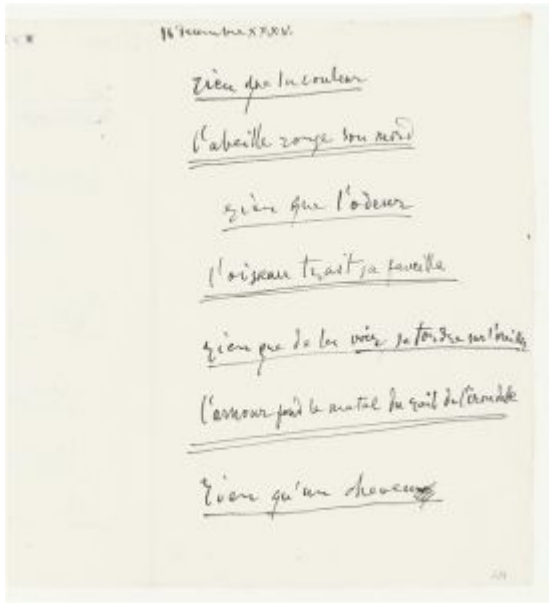 16 decembre XXXV.
rien que la couleur
l'abeille ronge son mord
rien que l'odeur
l'oiseau trait sa faucille
rien que de les voir se tordre sur l'oreiller
l'amour fond le metal du rail de l'irondelle
rien qu'un cheveu